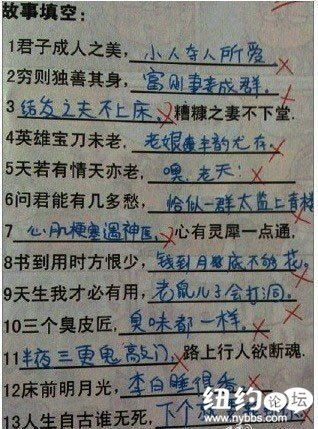 故事填空：
1君子成人之美，小人夺人所爱。
2穷则独善其身，富则妻妾成群。
3结发之夫不上床，糟糠之妻不下堂.
4英雄宝刀未老，老娘丰韵尤存。
5天若有情天亦老，噢，老天！
6问君能有几多愁，恰似一群太监上青楼
7心肌梗塞遇神医，心有灵犀一点通，
8书到用时方恨少，钱到月底不够花。
9天生我才必有用，老鼠儿子会打洞。
10三个臭皮匠，臭味都一样。
11半夜三更鬼敲门，路上行人欲断魂.
12床前明月光，李白睡很香
13人生自古谁无死，下个
纽约论坛
www.nybbs.com